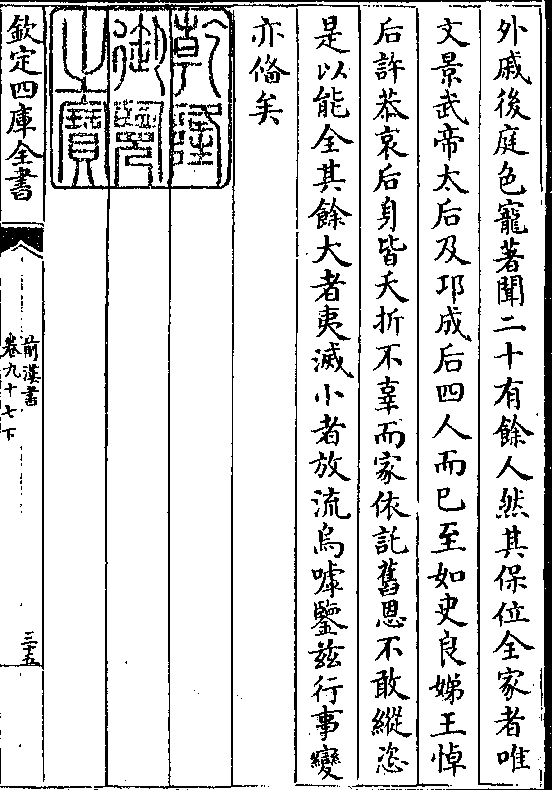 外戚後庭色寵著聞二十有餘人然其保位全家者唯
文景武帝太后及邛成后四人而已至如史良娣王悼
后許恭哀后身皆夭折不辜而家依託舊恩不敢縱恣
是以能全其餘大者夷滅小者放流烏嘑鑒茲行事變
亦備矣
乾隆
御覽
之寶
欽定四庫全書
前漢書
卷九十七下
三十五